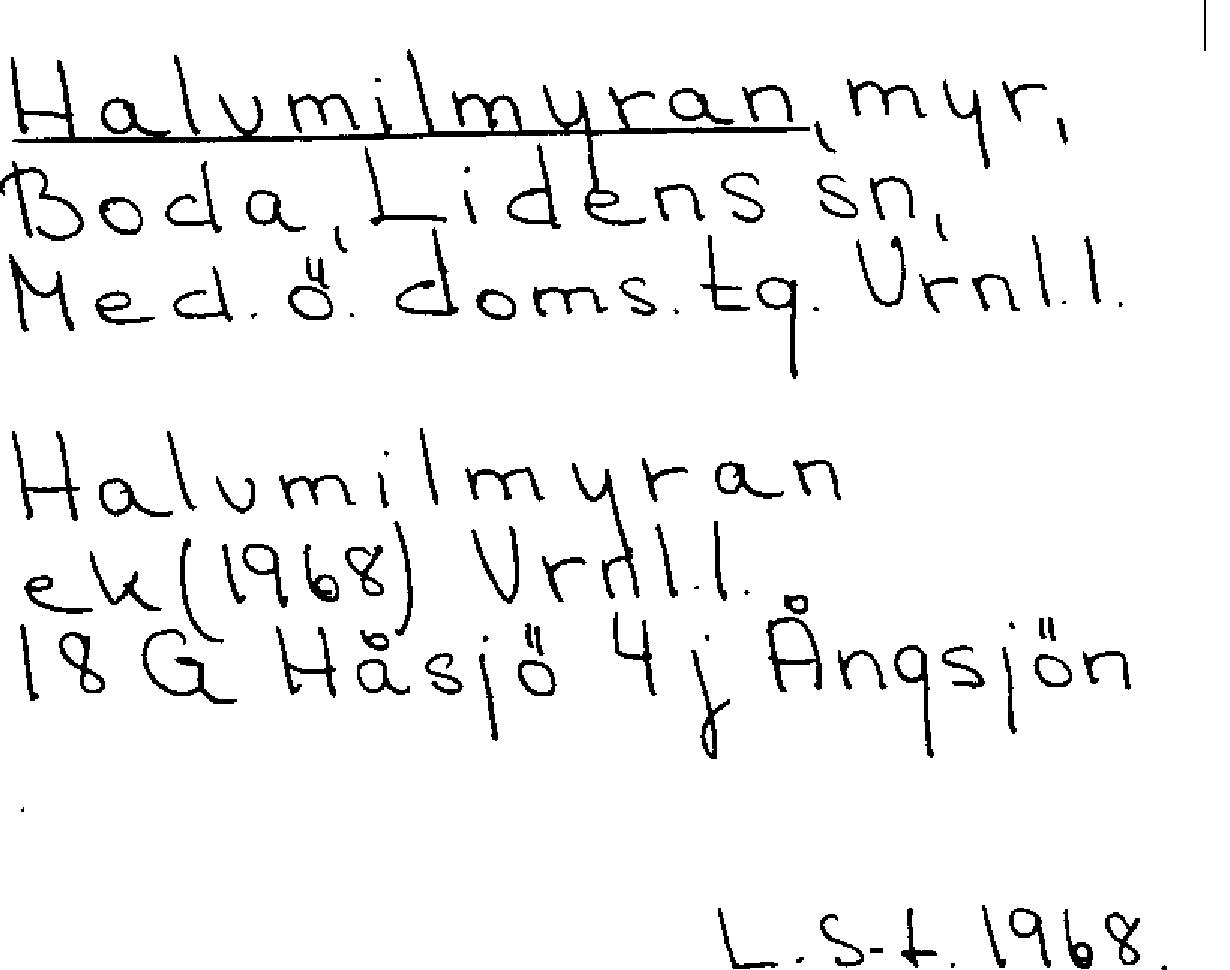 Halvmilmyran, myr,
Boda, Lidens sn,
Med. ö. doms. tg. Vrnl.l.
Halvmilmyran
ek (1968) Vrnl.l.
18 G Håsjö 4 j Ångsjön
L. S-t. 1968.